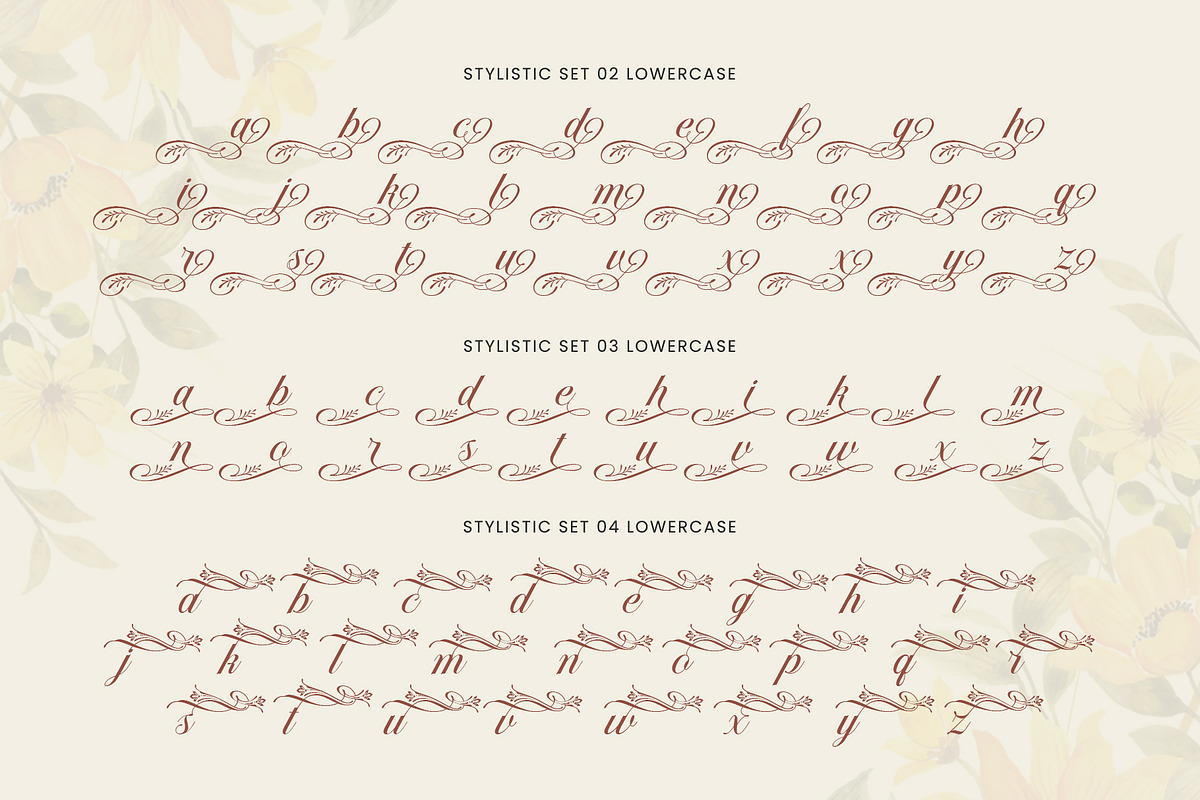 STYLISTIC SET 02 LOWERCASE
a b c d e f g h
i j k l m n o p q
r s t u v x x y z
STYLISTIC SET 03 LOWERCASE
a b c d e h i k l m
n o r s t u v w x z
STYLISTIC SET 04 LOWERCASE
a b c d e g h i
j k l m n o p q r
s t u v w x y z